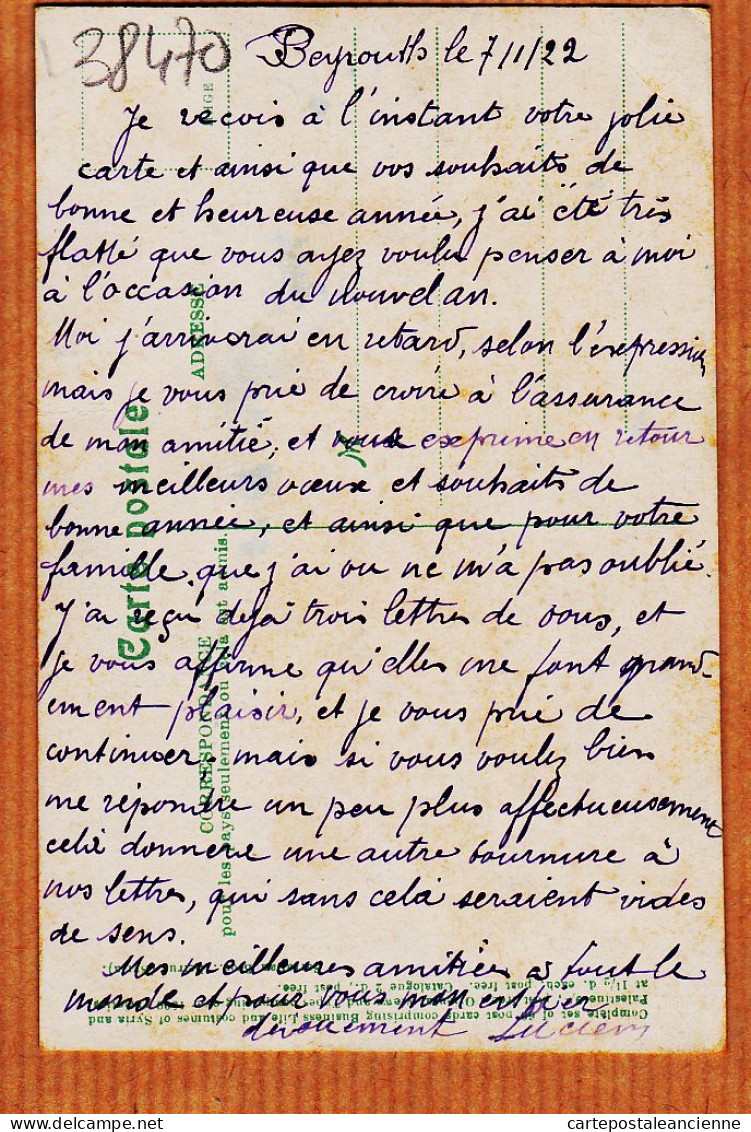 38470
Beyrouth le 7/1/22
Je recois à l'instant votre jolie
carte et ainsi que vos souhaits de
bonne et heureuse année, j'ai été très
flatté que vous ayez voulu penser à moi
à l'occasion du nouvel an.
Moi j'arriverai en retard, selon l'expression
mais je vous prie de croire à l'assurance
de mon amitié, et vous exprime en retour
mes meilleurs voeux et souhaits de
bonne année, et ainsi que pour votre
famille que j'ai vu ne m'a pas oublié.
J'ai reçu dejà trois lettres de vous, et
je vous affirme qu'elles me font grand-
ement plaisir, et je vous prie de
continuer, mais si vous voulez bien
me répondre un peu plus affectueusement
celà donnere une autre tournure à
nos lettres, qui sans celà seraient vides
de sens.
Mes meilleures amitiées à tout le
monde et pour vous mon entier
dévouement Lucien
Carte postale
ADRESSE
CORRESPONDANCE
pour les pays seulement ou cela est admis.
Complete set of post cards comprising Business Life and costumes of Syria and
at 1½ d. each, post free. Catalogue 2 d. post free.
www.delcampe.net
cartepostaleancienne